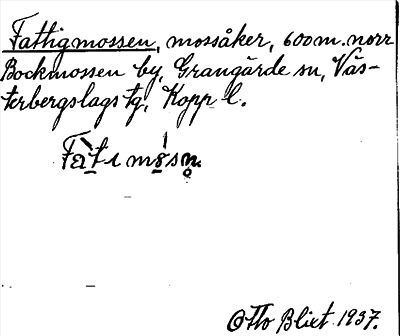 Fattigmossen, mossåker, 600 m. norr
Bockmossen by, Grangärde sn, Väs-
terbergslags tg, Kopp. l.
Otto Blixt 1937.